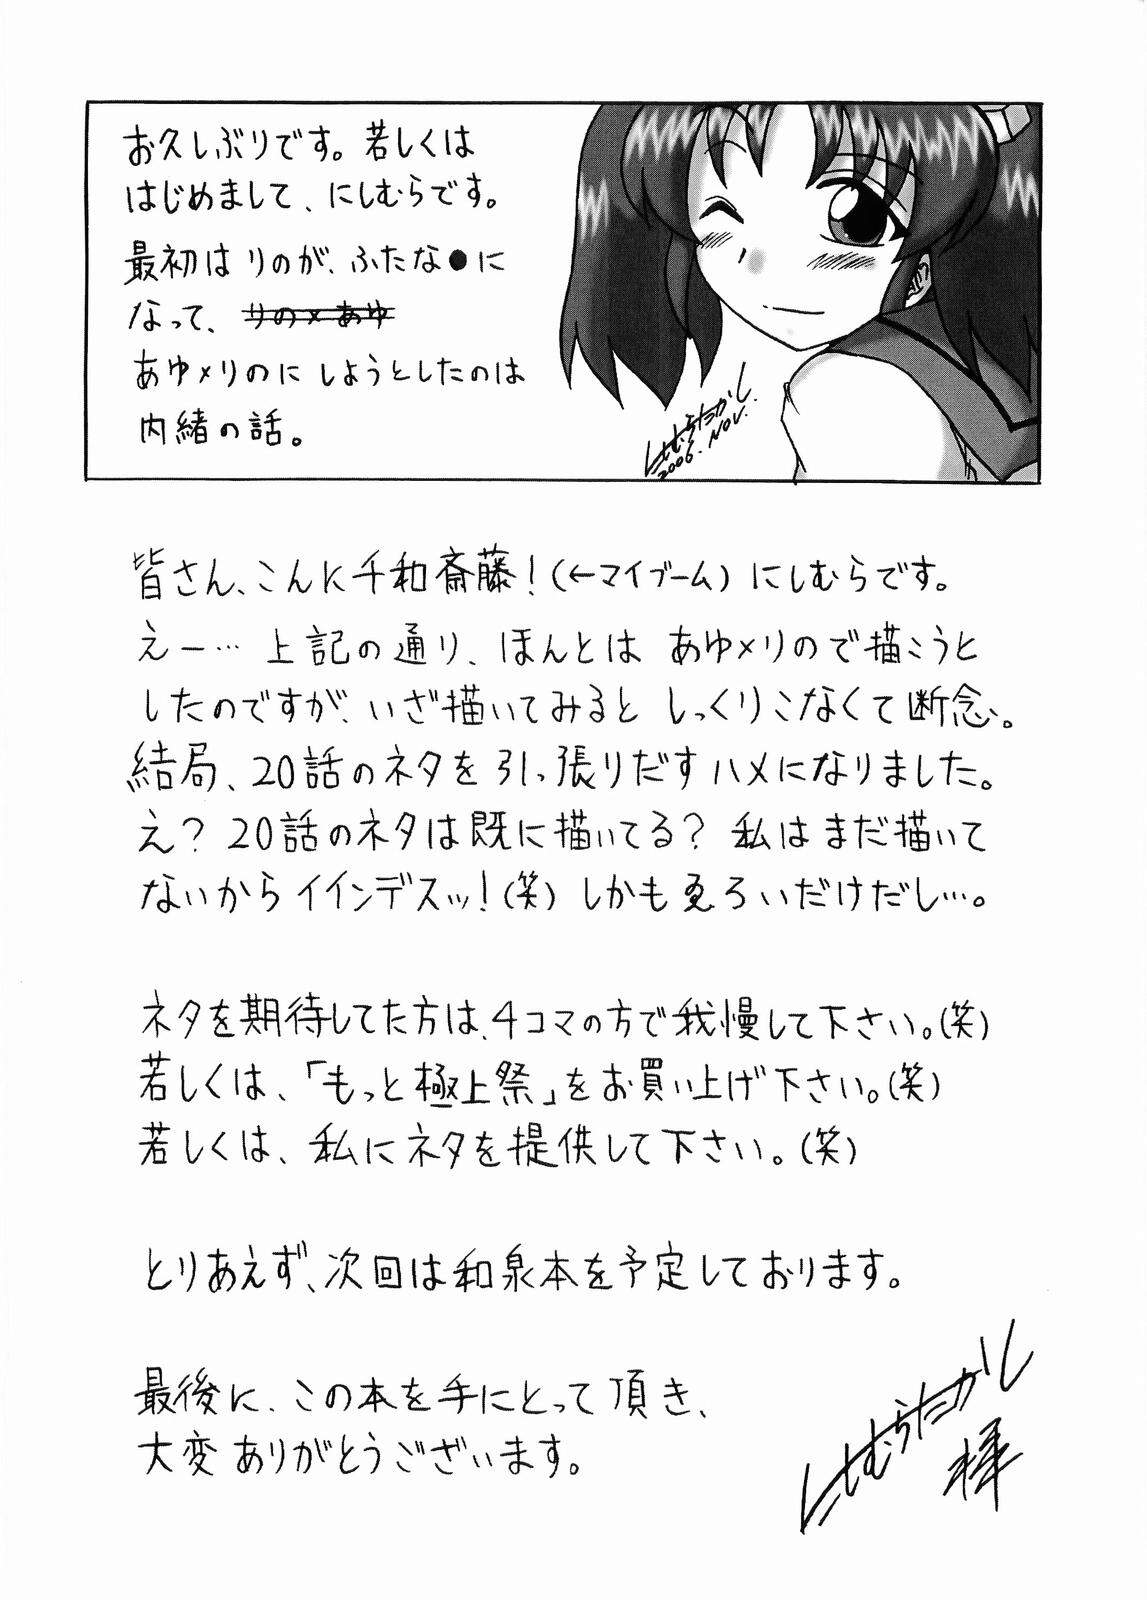 お久しぶりです。若しくは
はじめまして、にしむらです。
最初は りのが、ふたな●に
なって、りの×あゆ
あゆ×りのに しようとしたのは
内緒の話。
にしむらたかし
2006. NOV.
皆さん、こんに千和斎藤!(←マイブーム) にしむらです。
えー… 上記の通り、ほんとは あゆ×りので描こうと
したのですが、いざ描いてみると しっくりこなくて断念。
結局、20話のネタを引っ張りだすハメになりました。
え? 20話のネタは既に描いてる? 私はまだ描いて
ないからイインデスッ!(笑) しかもゑろいだけだし…。
ネタを期待してた方は、4コマの方で我慢して下さい。(笑)
若しくは、「もっと極上祭」をお買い上げ下さい。(笑)
若しくは、私にネタを提供して下さい。(笑)
とりあえず、次回は和泉本を予定しております。
最後に、この本を手にとって頂き、
大変ありがとうございます。
にしむらたかし
拝